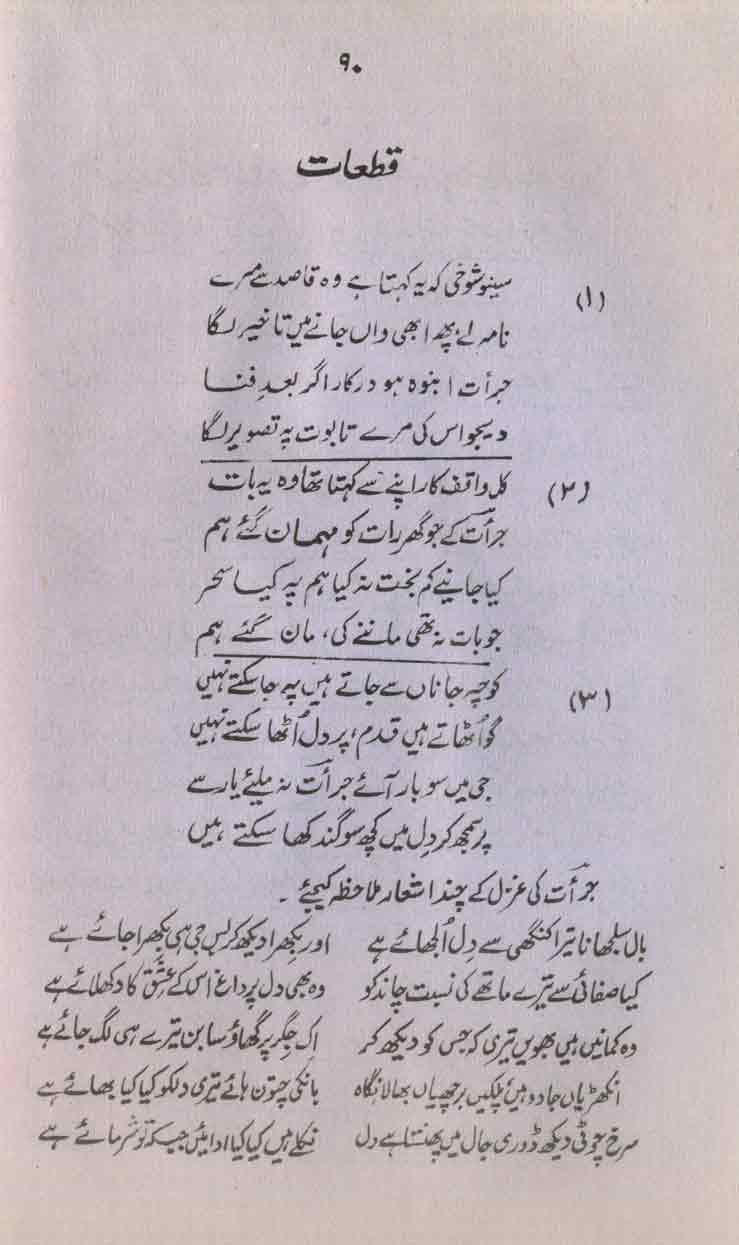 ۹۰
قطعات
(۱) سینو شوخی کہ یہ کہتا ہے وہ قاصد سے مرے
نامہ لے پھر ابھی واں جانے میں تاخیر لگا
جرأت انبوہ ہو درکار اگر بعدِ فنا
دیجو اس کی مرے تابوت پہ تصویر لگا
(۲) کل واقف کار اپنے سے کہتا تھا وہ یہ بات
جرأت کے جو گھر رات کو مہمان گئے ہم
کیا جانیے کم بخت نہ کیا ہم پہ کیا سحر
جو بات نہ تھی ماننے کی، مان گئے ہم
(۳) کوچہ جاناں سے جاتے ہیں پہ جا سکتے نہیں
گو اُٹھاتے ہیں قدم، پر دل اُٹھا سکتے نہیں
جی میں سو بار آئے جرأت نہ ملیئے یار سے
پر سمجھ کر دِل میں کچھ سوگند کھا سکتے ہیں
جرأت کی غزل کے چند اشعار ملاحظہ کیجئے ۔
بال سلجھانا تیرا کنگھی سے دِل اُلجھائے ہے اور بکھرا دیکھ کر بس جی ہی بکھرا جائے ہے
کیا صفائی سے تیرے ماتھے کی نسبت چاند کو وہ بھی دل پر داغ اس کے عِشق کا دکھلائے ہے
وہ کمانیں ہیں بھویں تیری کہ جس کو دیکھ کر اِک جِگر پر گھاؤ سا بن تیرے ہی لگ جائے ہے
انکھڑیاں جادو ہیں پلکیں برچھیاں بھالا نگاہ بانکی چتون ہائے تیری دلکو کیا کیا بھائے ہے
سرخ چوٹی دیکھ ڈوری جال میں پھنستا ہے دل نکلے ہیں کیا کیا ادائیں جبکہ تو شرمائے ہے